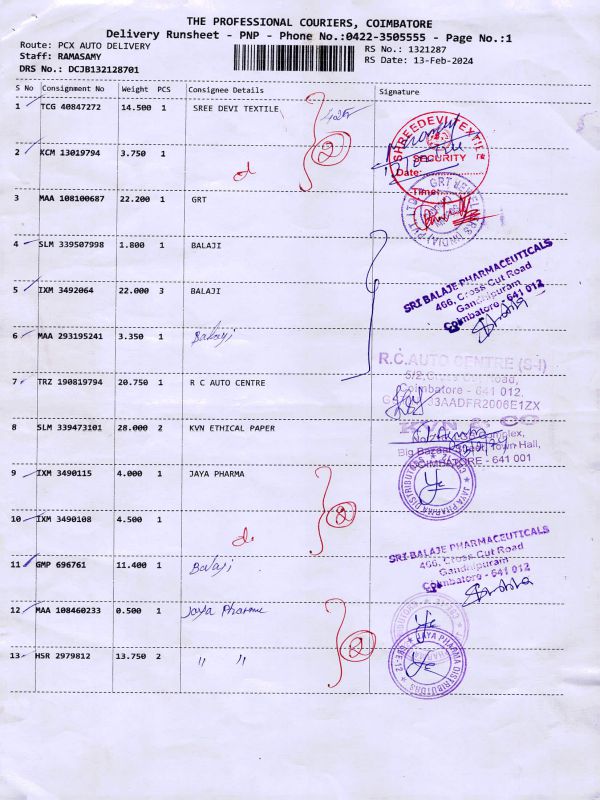 THE PROFESSIONAL COURIERS, COIMBATORE
Delivery Runsheet - PNP - Phone No.:0422-3505555 - Page No.:1
Route: PCX AUTO DELIVERY RS No.: 1321287
Staff: RAMASAMY RS Date: 13-Feb-2024
DRS No.: DCJB132128701
S No Consignment No Weight PCS Consignee Details Signature
1 TCG 40847272 14.500 1 SREE DEVI TEXTILE
SHREEDEVI TEXTILE
2 KCM 13019794 3.750 1 d 2
SECURITY
Date:
Time:
3 MAA 108100687 22.200 1 GRT
GRT JEWELLERS (INDIA) PVT. LTD
4 SLM 339507998 1.800 1 BALAJI
SRI BALAJE PHARMACEUTICALS
466, Cross Cut Road
Gandhipuram
Coimbatore - 641 012
5 IXM 3492064 22.000 3 BALAJI
6 MAA 293195241 3.350 1 Balaji
R.C.AUTO CENTRE (S-I)
7 TRZ 190819794 20.750 1 R C AUTO CENTRE
Road,
Coimbatore - 641 012,
33AADFR2006E1ZX
8 SLM 339473101 28.000 2 KVN ETHICAL PAPER
KVN & CO
Complex,
Big Bazaar Street, Town Hall,
COIMBATORE - 641 001
9 IXM 3490115 4.000 1 JAYA PHARMA
JAYA PHARMA DISTRIBUTORS
10 IXM 3490108 4.500 1 d. 2
11 GMP 696761 11.400 1 Balaji
SRI BALAJE PHARMACEUTICALS
466, Cross Cut Road
Gandhipuram
Coimbatore - 641 012
12 MAA 108460233 0.500 1 Jaya Pharma
13 HSR 2979812 13.750 2 " " 2
JAYA PHARMA DISTRIBUTORS
CBE-12